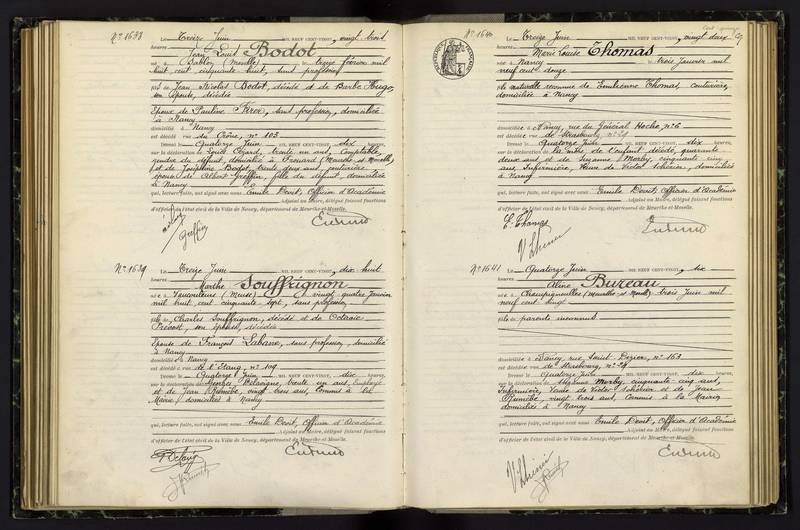 N° 1638 Le Treize Juin MIL NEUF CENT-VINGT, vingt trois
heures
Jean Louis Bodot
né à Sablon (Moselle) le treize février mil
huit cent cinquante huit, sans profession
fils de Jean Nicolas Bodot, décédé et de Barbe Hugo,
son épouse, décédée
Epoux de Pauline sans profession, domiciliée
à Nancy
domicilié à Nancy
est décédé rue du Crône, n° 103
Dressé le Quatorze Juin MIL NEUF CENT-VINGT, dix heures
sur la déclaration de Louis trente un ans, Comptable,
gendre du défunt, domicilié à Frouard (Meurthe et Moselle)
et de Joséphine Bodot, trente deux ans, couturière,
épouse de Albert Greffin, fille du défunt, domiciliée
à Nancy
qui, lecture faite, ont signé avec nous Emile Devit, Officier d'Académie
Adjoint au Maire, délégué faisant fonctions
d'officier de l'état civil de la Ville de Nancy, département de Meurthe-et-Moselle.
N° 1639 Le Treize Juin MIL NEUF CENT-VINGT, dix huit
heures
Marthe Souffrignon
née à Vaucouleurs (Meuse) le vingt quatre Janvier
mil huit cent cinquante sept, sans profession
fille de Charles Souffrignon, décédé et de Octavie
Prévost, son épouse, décédée
Epouse de François Labane, sans profession, domicilié
à Nancy
domiciliée à Nancy
est décédée rue de l'Etang, n° 109
Dressé le Quatorze Juin MIL NEUF CENT-VINGT, dix heures
sur la déclaration de trente un ans, Employé
et de Jean vingt trois ans, Commis à la
Mairie, domiciliés à Nancy
qui, lecture faite, ont signé avec nous Emile Devit, Officier d'Académie
Adjoint au Maire, délégué faisant fonctions
d'officier de l'état civil de la Ville de Nancy, département de Meurthe-et-Moselle.
N° 1640 Le Treize Juin MIL NEUF CENT-VINGT, vingt deux
heures
Marie Louise Thomas
née à Nancy le trois Janvier mil
neuf cent douze
fille naturelle reconnue de Emilienne Thomas, couturière,
domiciliée à Nancy
domiciliée à Nancy, rue du Général Hoche, n° 6
est décédée rue de Strasbourg n° 29
Dressé le Quatorze Juin MIL NEUF CENT-VINGT, dix heures
sur la déclaration de la mère de l'enfant décédé, quarante
deux ans et de Suzanne Morby, cinquante cinq
ans, Infirmière, Veuve de Victor domiciliées
à Nancy
qui, lecture faite, ont signé avec nous Emile Devit, Officier d'Académie
Adjoint au Maire, délégué faisant fonctions
d'officier de l'état civil de la Ville de Nancy, département de Meurthe-et-Moselle.
E. Thomas
N° 1641 Le Quatorze Juin MIL NEUF CENT-VINGT, six
heures
Aline Bureau
née à Champigneulles (Meurthe et Moselle) trois Juin mil
neuf cent vingt
fille de parents inconnus
domiciliée à Nancy, rue n° 163
est décédée rue de Strasbourg, n° 29
Dressé le Quatorze Juin MIL NEUF CENT-VINGT, dix heures
sur la déclaration de Morby, cinquante cinq ans,
Infirmière, Veuve de Victor et de Jean
vingt trois ans, Commis à la Mairie,
domiciliés à Nancy
qui, lecture faite, ont signé avec nous Emile Devit, Officier d'Académie
Adjoint au Maire, délégué faisant fonctions
d'officier de l'état civil de la Ville de Nancy, département de Meurthe-et-Moselle.